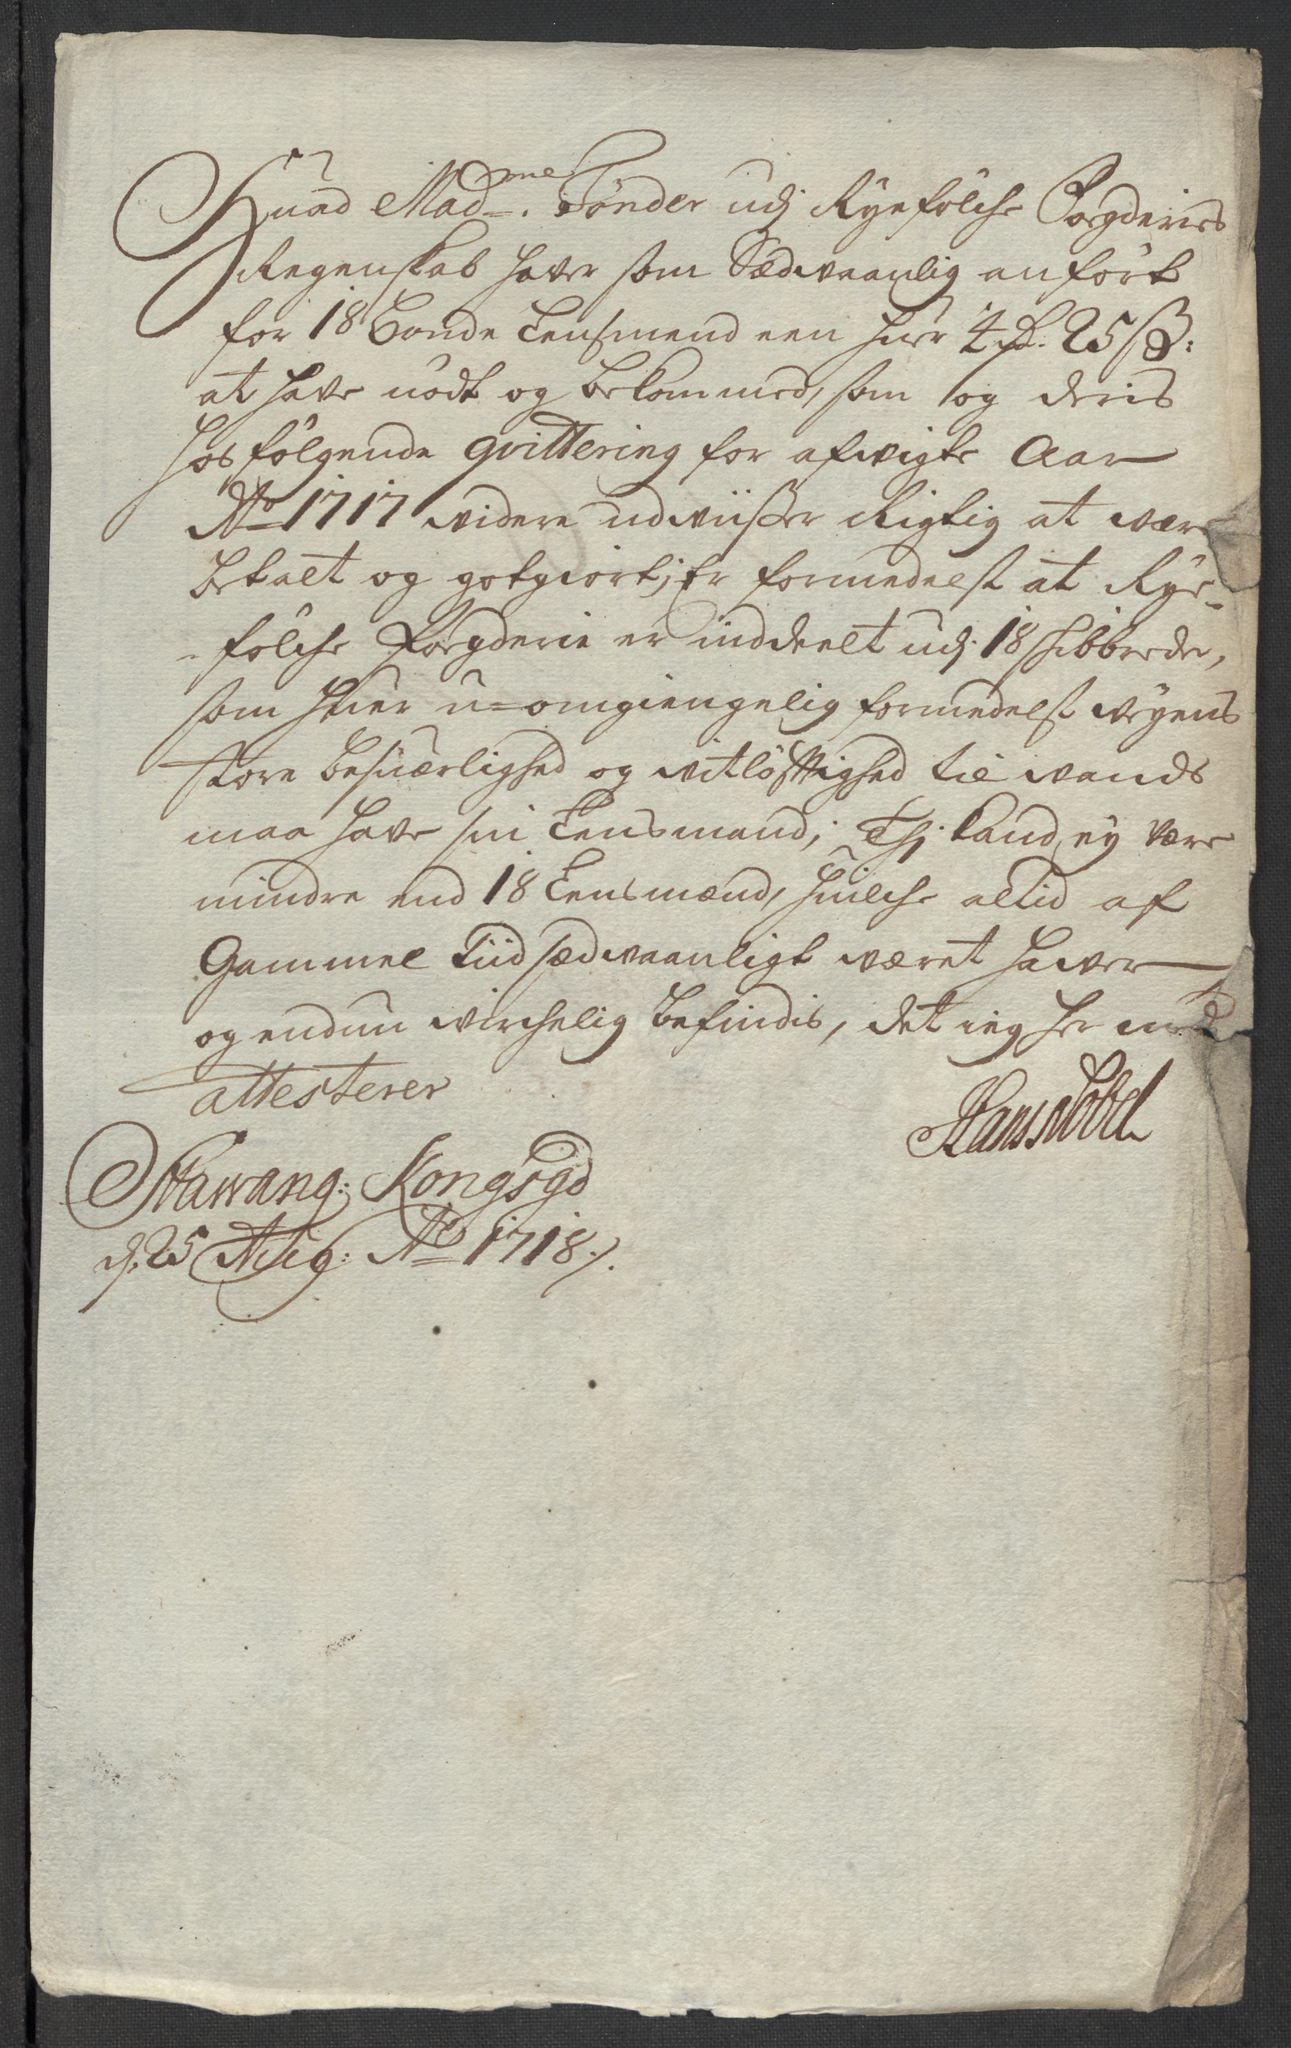 Huad Mad^me Tønder udj Ryefølche Fogderies
Regenskab haver som Sædvaanlig anført
for 18 Bonde Lensmend een huer 4 rd. 25 sk:
at have nødt og bekommed, som og deris
hosfølgende qvittering for afvigte Aar
A° 1717 videre udviisser Rigtig at være
betalt og gotgiort; Er formedelst at Rye-
-følche Fogderie er inddeelt udj 18 schibbrede,
som huer u-omgiengelig formedelst veyens
store besuærlighed og vitløfftighed til vands
maa have sin Lensmand; Thj kand ey være
mindre end 18 Lensmænd, huilche altid af
Gammel Tiid sædvaanligt været haver
og endnu virchelig befindis, det ieg her med
attesterer
Hans Nobel
Stavang: Kongsgd
d. 25 Aug: A° 1718 /.